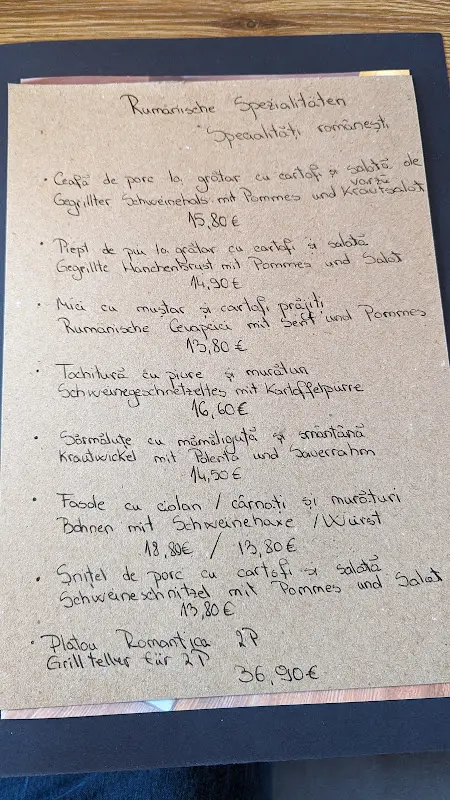 Rumänische Spezialitäten
Specialităţi româneşti
• Ceafă de porc la grătar cu cartofi şi salată de varză
Gegrillter Schweinehals mit Pommes und Krautsalat
15,80 €
• Piept de pui la grătar cu cartofi şi salată
Gegrillte Hänchenbrust mit Pommes und Salat
14,90 €
• Mici cu muştar şi cartofi prăjiţi
Rumänische Cevapcici mit Senf und Pommes
13,80 €
• Tochitură cu piure şi murături
Schweinegeschnetzeltes mit Kartoffelpurre
16,60 €
• Sărmăluţe cu mămăliguţă şi smântână
Krautwickel mit Polenta und Sauerrahm
14,50 €
• Fasole cu ciolan / cârnaţi şi murături
Bohnen mit Schweinehaxe / Würst
18,80€ / 13,80 €
• Şniţel de porc cu cartofi şi salată
Schweineschnitzel mit Pommes und Salat
13,80 €
• Platou Romantica 2P
Grillteller für 2P
36,90 €